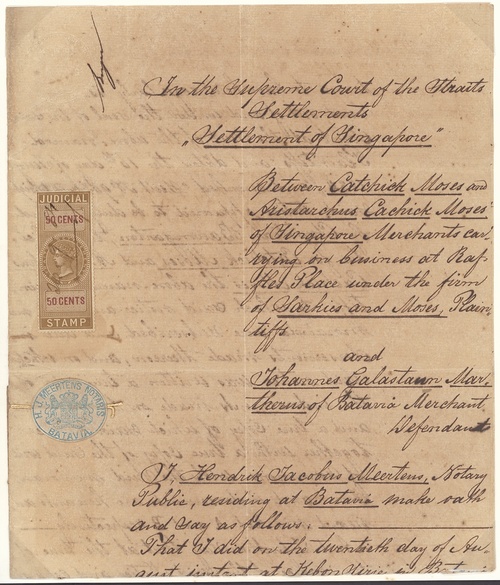 In the Supreme Court of the Straits
Settlements
„Settlement of Singapore"
Between Catchick Moses and
Aristarchus Cachick Moses
of Singapore Merchants car
rying on business at Raf
fles Place under the firm
of Sarkies and Moses, Plain
tiffs
and
Johannes Galastaun Mar
therus of Batavia Merchant
Defendant
I, Hendrik Jacobus Meertens, Notary
Public, residing at Batavia make oath
and say as follows.
That I did on the twentieth day of Au
gust instant at Kebon
JUDICIAL
50 CENTS
50 CENTS
STAMP
H. J. MEERTENS NOTARIS
BATAVIA